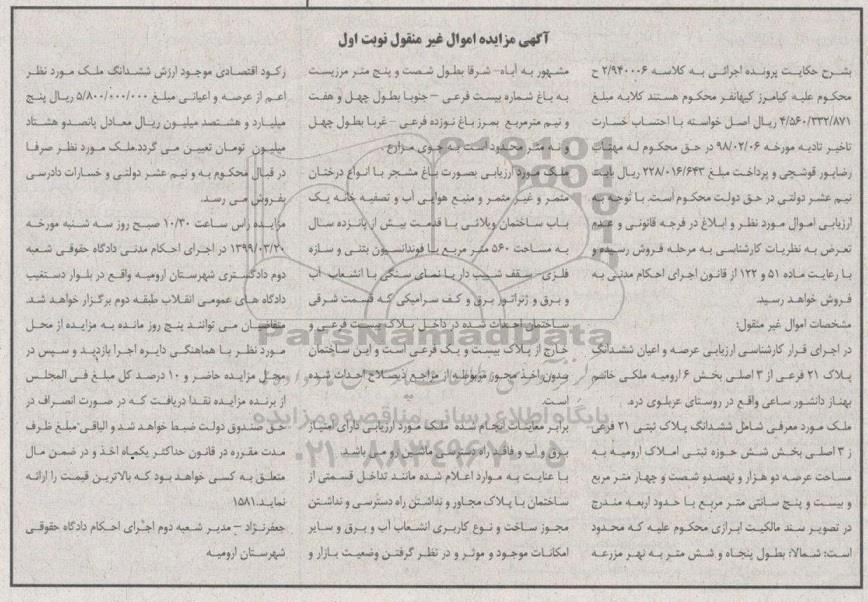 آگهی مزایده اموال غیر منقول نوبت اول
بشرح حکایت پرونده اجرائی به کلاسه ۲/۹۴۰۰۰۶ ح
محکوم علیه کیامرز کیهانفر محکوم هستند کلابه مبلغ
۴/۵۶۰/۳۳۲/۸۷۱ ریال اصل خواسته با احتساب خسارت
تاخیر تادیه مورخه ۹۸/۰۲/۰۶ در حق محکوم له مهتاب
رضاپور قوشچی و پرداخت مبلغ ۲۲۸/۰۱۶/۶۴۳ ریال بابت
نیم عشر دولتی در حق دولت محکوم است. با توجه به
ارزیابی اموال مورد نظر و ابلاغ در فرجه قانونی و عدم
تعرض به نظریات کارشناسی به مرحله فروش رسیده و
با رعایت ماده ۵۱ و ۱۲۲ از قانون اجرای احکام مدنی به
فروش خواهد رسید.
مشخصات اموال غیر منقول:
در اجرای قرار کارشناسی ارزیابی عرصه و اعیان ششدانگ
پلاک ۲۱ فرعی از ۳ اصلی بخش ۶ ارومیه ملکی خانم
بهناز دانشور ساعی واقع در روستای عربلوی دره.
ملک مورد معرفی شامل ششدانگ پلاک ثبتی ۲۱ فرعی
ز ۳ اصلی بخش شش حوزه ثبتی املاک ارومیه به
مساحت عرصه دو هزار و نهصدو شصت و چهار متر مربع
و بیست و پنج سانتی متر مربع با حدود اربعه مندرج
در تصویر سند مالکیت ابرازی محکوم علیه که محدود
است: شمالا: بطول پنجاه و شش متر به نهر مزرعه
مشهور به آباه- شرقا بطول شصت و پنج متر مرزیست
به باغ شماره بیست فرعی – جنوبا بطول چهل و هفت
و نیم مترمربع بمرز باغ نوزده فرعی – غربا بطول چهل
و نه متر محدود است به جوی مزارع .
ملک مورد ارزیابی بصورت باغ مشجر با انواع درختان
مثمر و غیر مثمر و منبع هوایی آب و تصفیه خانه یک
باب ساختمان ویلائی با قدمت بیش از پانزده سال
به مساحت ۵۶۰ متر مربع با فوندانسیون بتنی و سازه
فلزی- سقف شیب دار با نمای سنگی با انشعاب آب
و برق و ژنراتور برق و کف سرامیکی که قسمت شرقی
ساختمان احداث شده در داخل پلاک بیست فرعی و
خارج از پلاک بیست و یک فرعی است و این ساختمان
بدون اخذ مجوز مربوطه از مراجع ذیصلاح احداث شده
است.
برابر معاینات انجام شده ملک مورد ارزیابی دارای امتیاز
برق و آب و فاقد راه دسترسی ماشین رو می باشد
با عنایت به موارد اعلام شده مانند تداخل قسمتی از
ساختمان با پلاک مجاور و نداشتن راه دسترسی و نداشتن
مجوز ساخت و نوع کاربری انشعاب آب و برق و سایر
امکانات موجود و موثر و در نظر گرفتن وضعیت بازار و
رکود اقتصادی موجود ارزش ششدانگ ملک مورد نظر
اعم از عرصه و اعیانی مبلغ ۵/۸۰۰/۰۰۰/۰۰۰ ریال پنج
میلیارد و هشتصد میلیون ریال معادل پانصدو هشتاد
میلیون تومان تعیین می گردد.ملک مورد نظر صرفا
در قبال محکوم به و نیم عشر دولتی و خسارات دادرسی
بفروش می رسد.
مزایده راس ساعت ۱۰/۳۰ صبح روز سه شنبه مورخه
۱۳۹۹/۰۳/۲۰ در اجرای احکام مدنی دادگاه حقوقی شعبه
دوم دادگستری شهرستان ارومیه واقع در بلوار دستغیب
دادگاه های عمومی انقلاب طبقه دوم برگزار خواهد شد.
متقاضیان می توانند پنج روز مانده به مزایده از محل
مورد نظر با هماهنگی دایره اجرا بازدید و سپس در
محل مزایده حاضر و ۱۰ درصد کل مبلغ فی المجلس
از برنده مزایده نقدا دریافت که در صورت انصراف در
حق صندوق دولت ضبط خواهد شد و الباقی مبلغ ظرف
مدت مقرره در قانون حداکثر یکماه اخذ و در ضمن مال
متعلق به کسی خواهد بود که بالاترین قیمت را ارائه
نماید.۱۵۸۱
جعفرنژاد – مدیر شعبه دوم اجرای احکام دادگاه حقوقی
شهرستان ارومیه
ParsNamadData
پایگاه اطلاع رسانی مناقصه و مزایده
۰۲۱-۸۸۳۴۹۶۷۰-۵